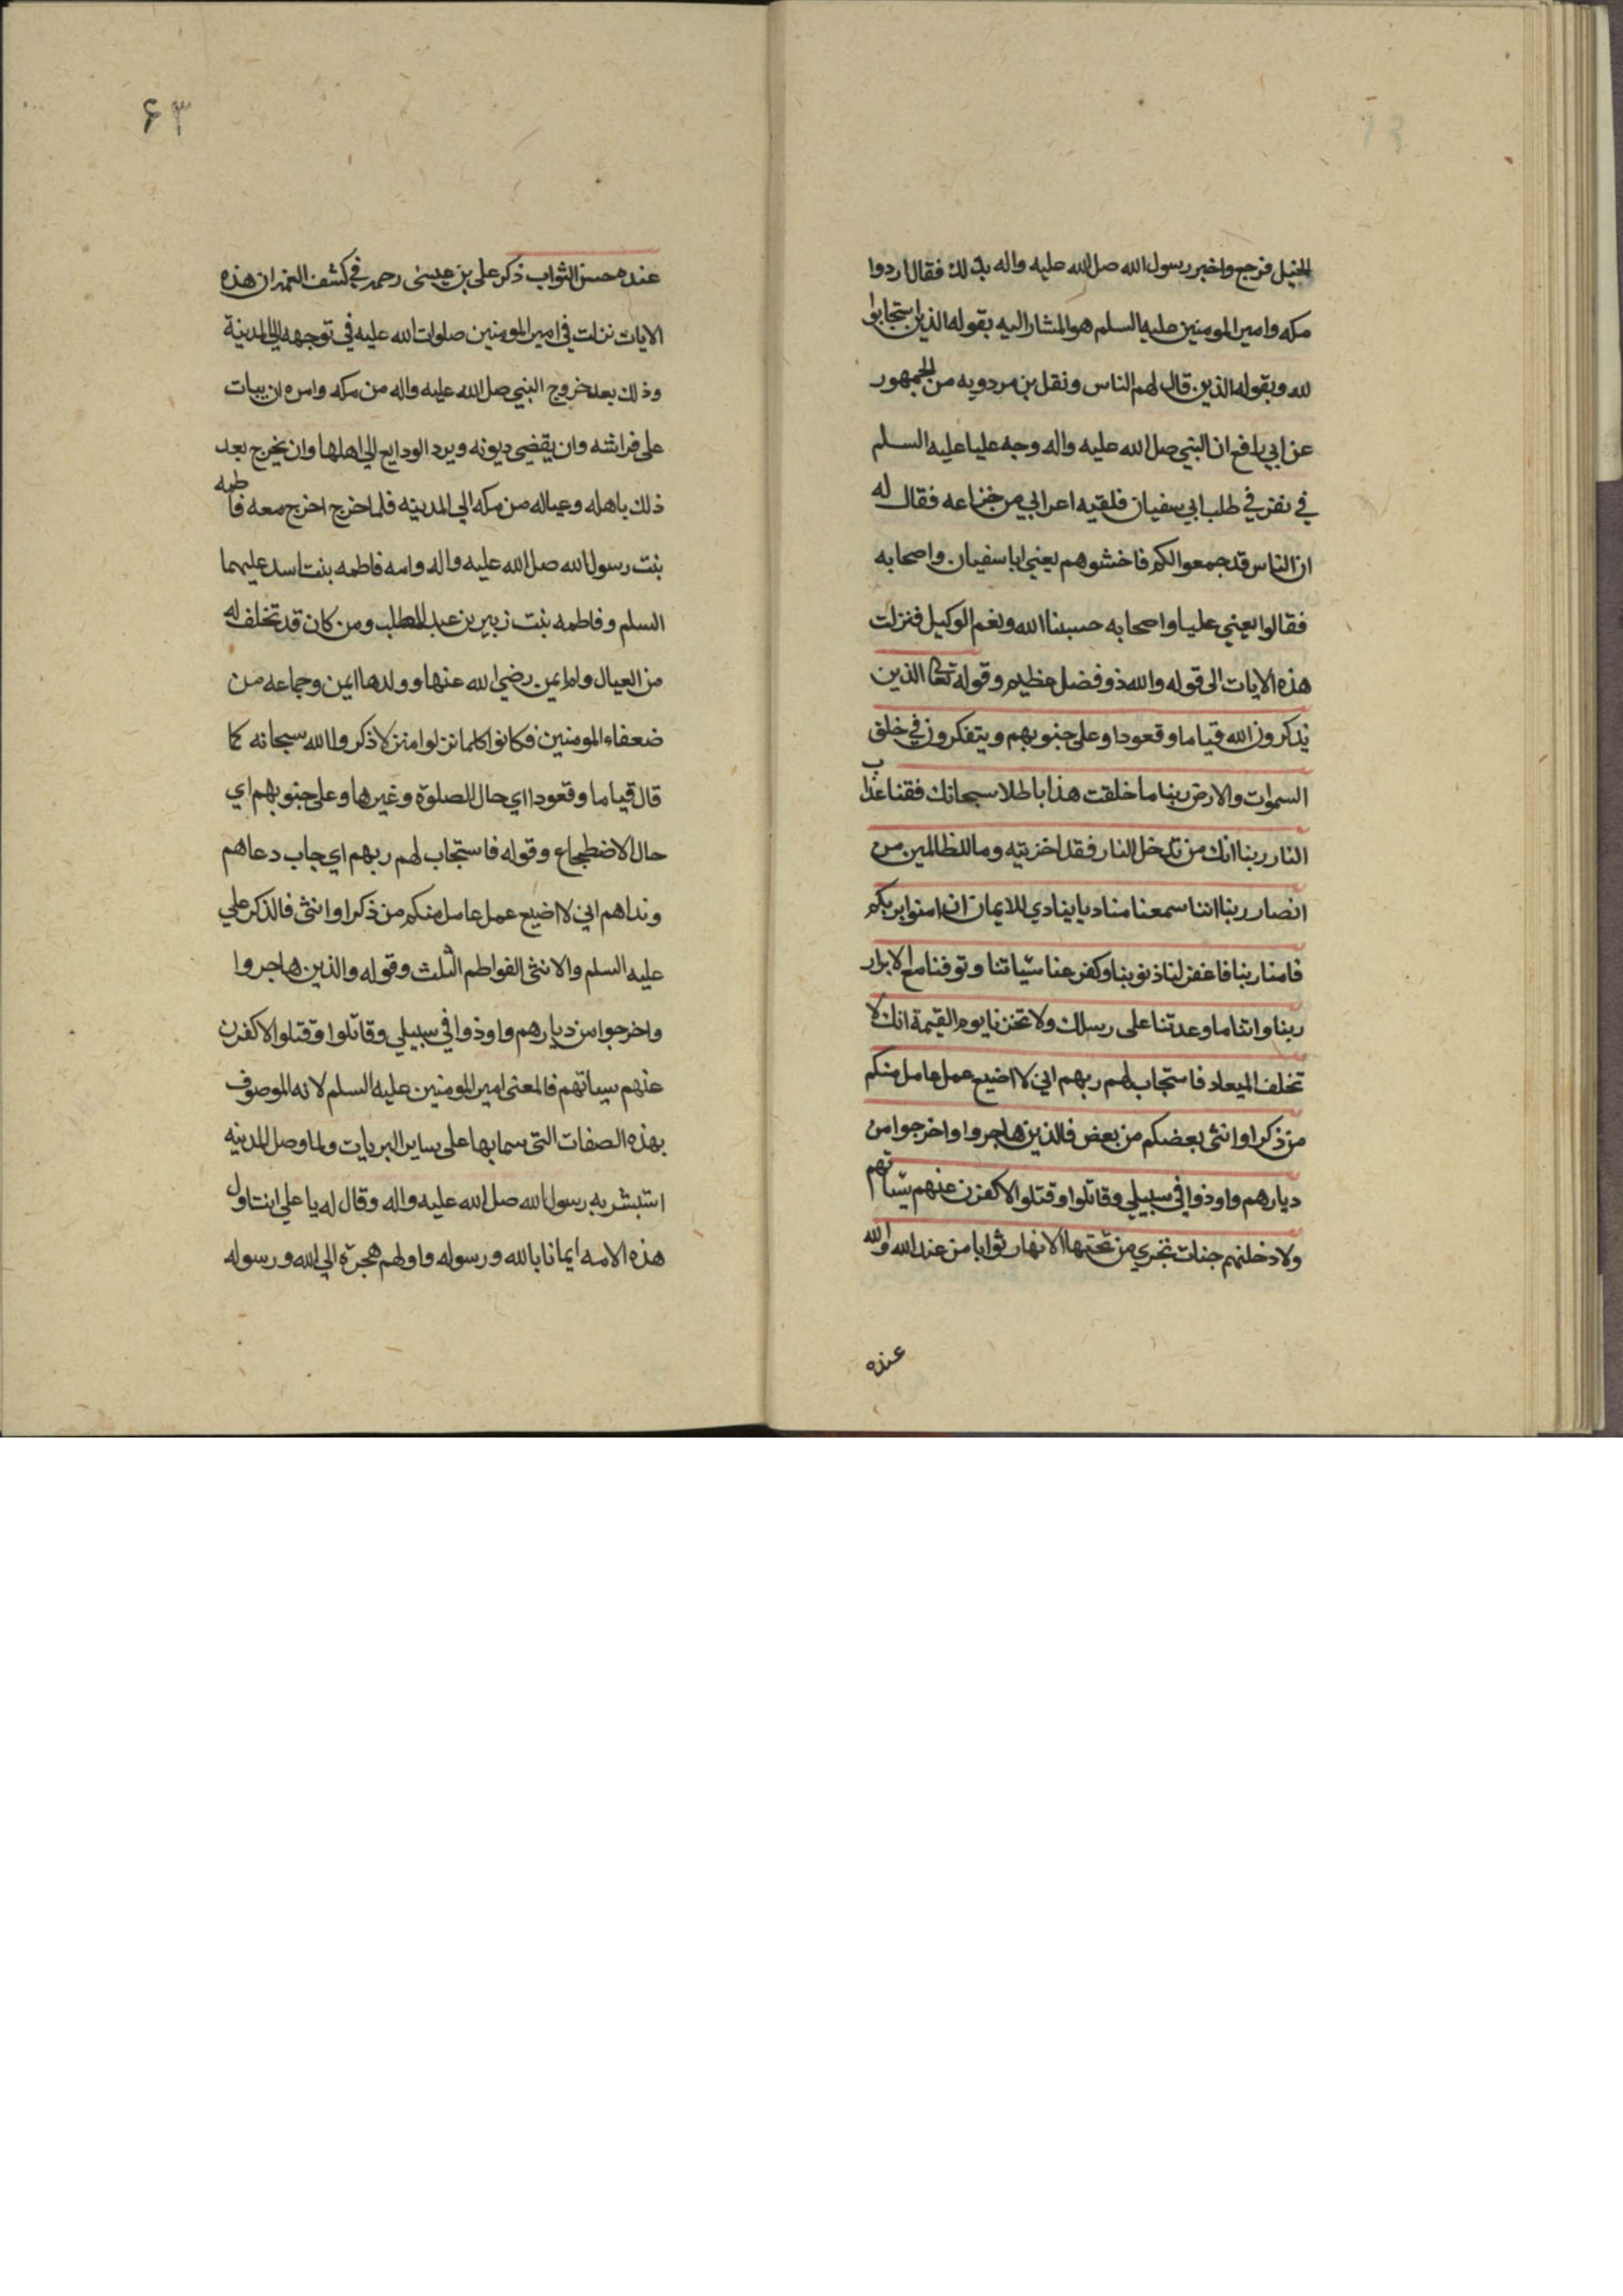 الخيل فرجع واخبر رسول الله صل الله عليه واله بذلك فقال اردوا
مكه وامير المومنين عليه السلم هو المشار اليه بقوله الذين استجابوا
لله وبقوله الذين قال لهم الناس ونقل بن مردويه من الجمهور
عن ابي رافع ان النبي صل الله عليه واله وجه عليا عليه السلم
في نفر في طلب ابي سفيان فلقيه اعرابي من خزاعه فقال له
ان الناس قد جمعوا لكم فاخشوهم يعني ابا سفيان واصحابه
فقالوا يعني عليا واصحابه حسبنا الله ونعم الوكيل فنزلت
هذه الايات الى قوله والله ذو فضل عظيم وقوله تعالى الذين
يذكرون الله قياما وقعودا وعلى جنوبهم ويتفكرون في خلق
السموات والارض ربنا ما خلقت هذا باطلا سبحانك فقنا عذاب
النار ربنا انك من تدخل النار فقد اخزيته وما للظالمين من
انصار ربنا اننا سمعنا مناديا ينادي للايمان ان امنوا بربكم
فامنا ربنا فاغفر لنا ذنوبنا وكفر عنا سيّاتنا وتوفنا مع الابرار
ربنا واتنا ما وعدتنا على رسلك ولا تخزنا يوم القيمة انك لا
تخلف الميعاد فاستجاب لهم ربهم اني لا اضيع عمل عامل منكم
من ذكر او انثى بعضكم من بعض فالذين هاجروا واخرجوا من
ديارهم واوذوا في سبيلي وقاتلوا وقتلوا لاكفرن عنهم سيّاتهم
ولادخلنهم جنات تجري من تحتها الانهار ثوابا من عند الله والله
عنده
۶۳
عنده حسن الثواب ذكر على بن عيسى رحمه في كشف الغمه ان هذه
الايات نزلت في امير المومنين صلوات الله عليه في توجهه الي المدينة
وذلك بعد خروج النبي صل الله عليه واله من مكه وامره ان يبات
على فراشه وان يقضي ديونه ويرد الودايع الي اهلها وان يخرج بعد
ذلك باهله وعياله من مكه الي المدينه فلما خرج اخرج معه فاطمه
بنت رسول الله صل الله عليه واله وامه فاطمه بنت اسد عليهما
السلم وفاطمه بنت زبير بن عبد المطلب ومن كان قد تخلف له
من العيال وام ايمن رضي الله عنها وولدها ايمن وجماعه من
ضعفاء المومنين فكانوا كلما نزلوا منزلا ذكروا الله سبحانه كما
قال قياما وقعودا اي حال الصلوة وغيرها وعلى جنوبهم اي
حال الاضطجاع وقوله فاستجاب لهم ربهم اي جاب دعاهم
ونداهم اني لا اضيع عمل عامل منكم من ذكر او انثى فالذكر علي
عليه السلم والانثى الفواطم الثلث وقوله والذين هاجروا
واخرجوا من ديارهم واوذوا في سبيلي وقاتلوا وقتلوا لاكفرن
عنهم سياتهم فالمعنى امير المومنين عليه السلم لانه الموصوف
بهذه الصفات التى سما بها على ساير البريات ولما وصل المدينه
استبشر به رسول الله صل الله عليه واله وقال له يا علي انت اول
هذه الامه ايمانا بالله ورسوله واولهم هجرة الي الله ورسوله